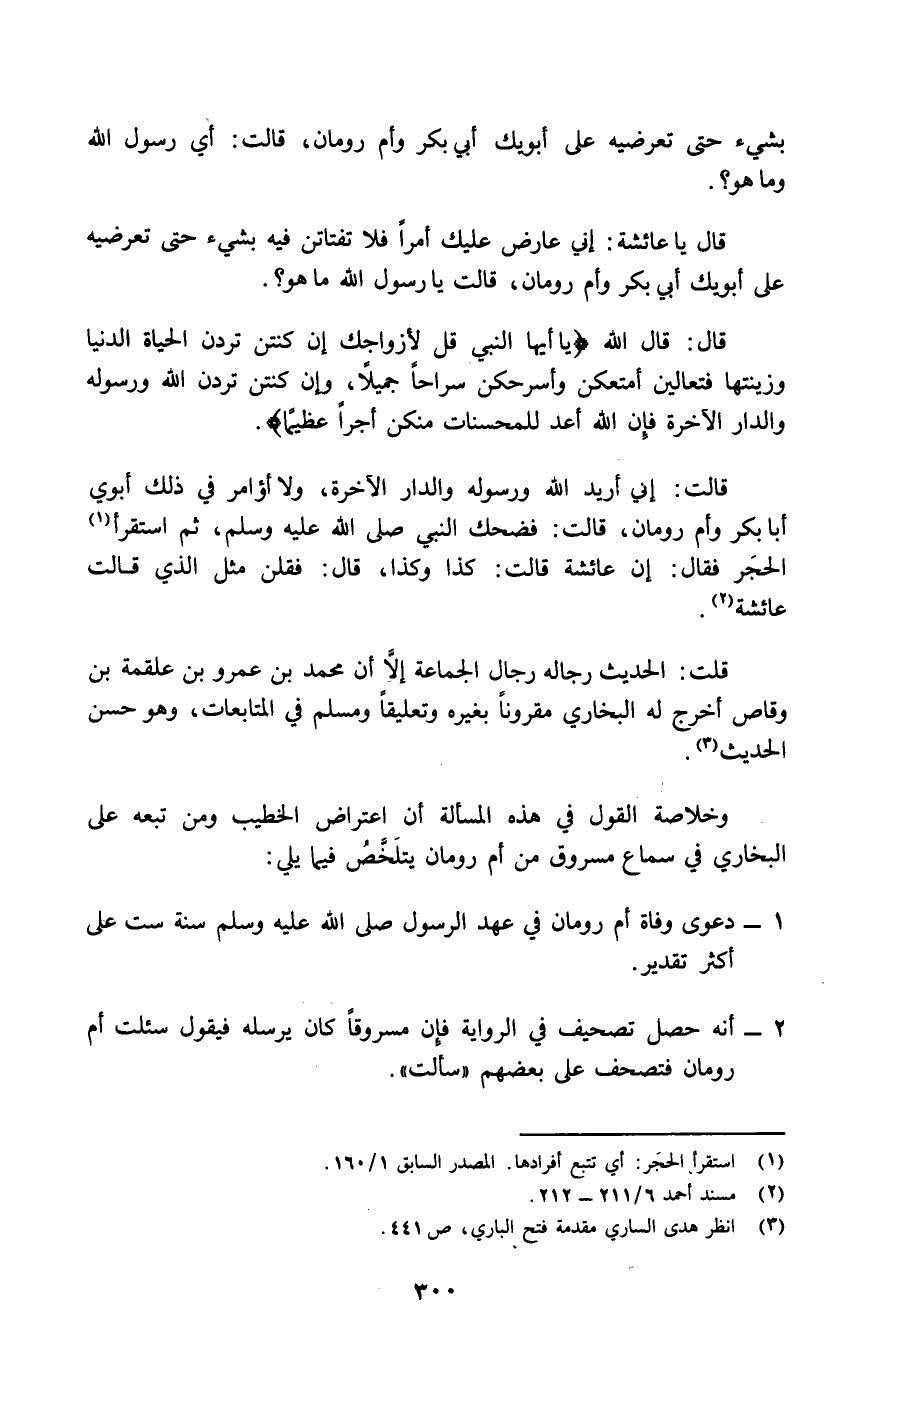 بشيء حتى تعرضيه على أبويك أبي بكر وأم رومان، قالت: أي رسول الله
وما هو؟.
قال يا عائشة: إني عارض عليك أمراً فلا تفتاتن فيه بشيء حتى تعرضيه
على أبويك أبي بكر وأم رومان، قالت يا رسول الله ما هو؟.
قال: قال الله ﴿يا أيها النبي قل لأزواجك إن كنتن تردن الحياة الدنيا
وزينتها فتعالين أمتعكن وأسرحكن سراحاً جميلًا، وإن كنتن تردن الله ورسوله
والدار الآخرة فإن الله أعد للمحسنات منكن أجراً عظيمًا﴾.
قالت: إني أريد الله ورسوله والدار الآخرة، ولا أؤامر في ذلك أبوي
أبا بكر وأم رومان، قالت: فضحك النبي صلى الله عليه وسلم، ثم استقرأ(١)
الحجَر فقال: إن عائشة قالت: كذا وكذا، قال: فقلن مثل الذي قـالت
عائشة(٢).
قلت: الحديث رجاله رجال الجماعة إلاَّ أن محمد بن عمرو بن علقمة بن
وقاص أخرج له البخاري مقروناً بغيره وتعليقاً ومسلم في المتابعات، وهو حسن
الحديث(٣).
وخلاصة القول في هذه المسألة أن اعتراض الخطيب ومن تبعه على
البخاري في سماع مسروق من أم رومان يتلَخَّصُ فيما يلي:
١ ــ دعوى وفاة أم رومان في عهد الرسول صلى الله عليه وسلم سنة ست على
أكثر تقدير.
٢ ــ أنه حصل تصحيف في الرواية فإن مسروقاً كان يرسله فيقول سئلت أم
رومان فتصحف على بعضهم «سألت».
(١) استقرأ الحجَر: أي تتبع أفرادها. المصدر السابق ١٦٠/١.
(٢) مسند أحمد ٢١١/٦ ــ ٢١٢.
(٣) انظر هدى الساري مقدمة فتح الباري، ص ٤٤١.
٣٠٠